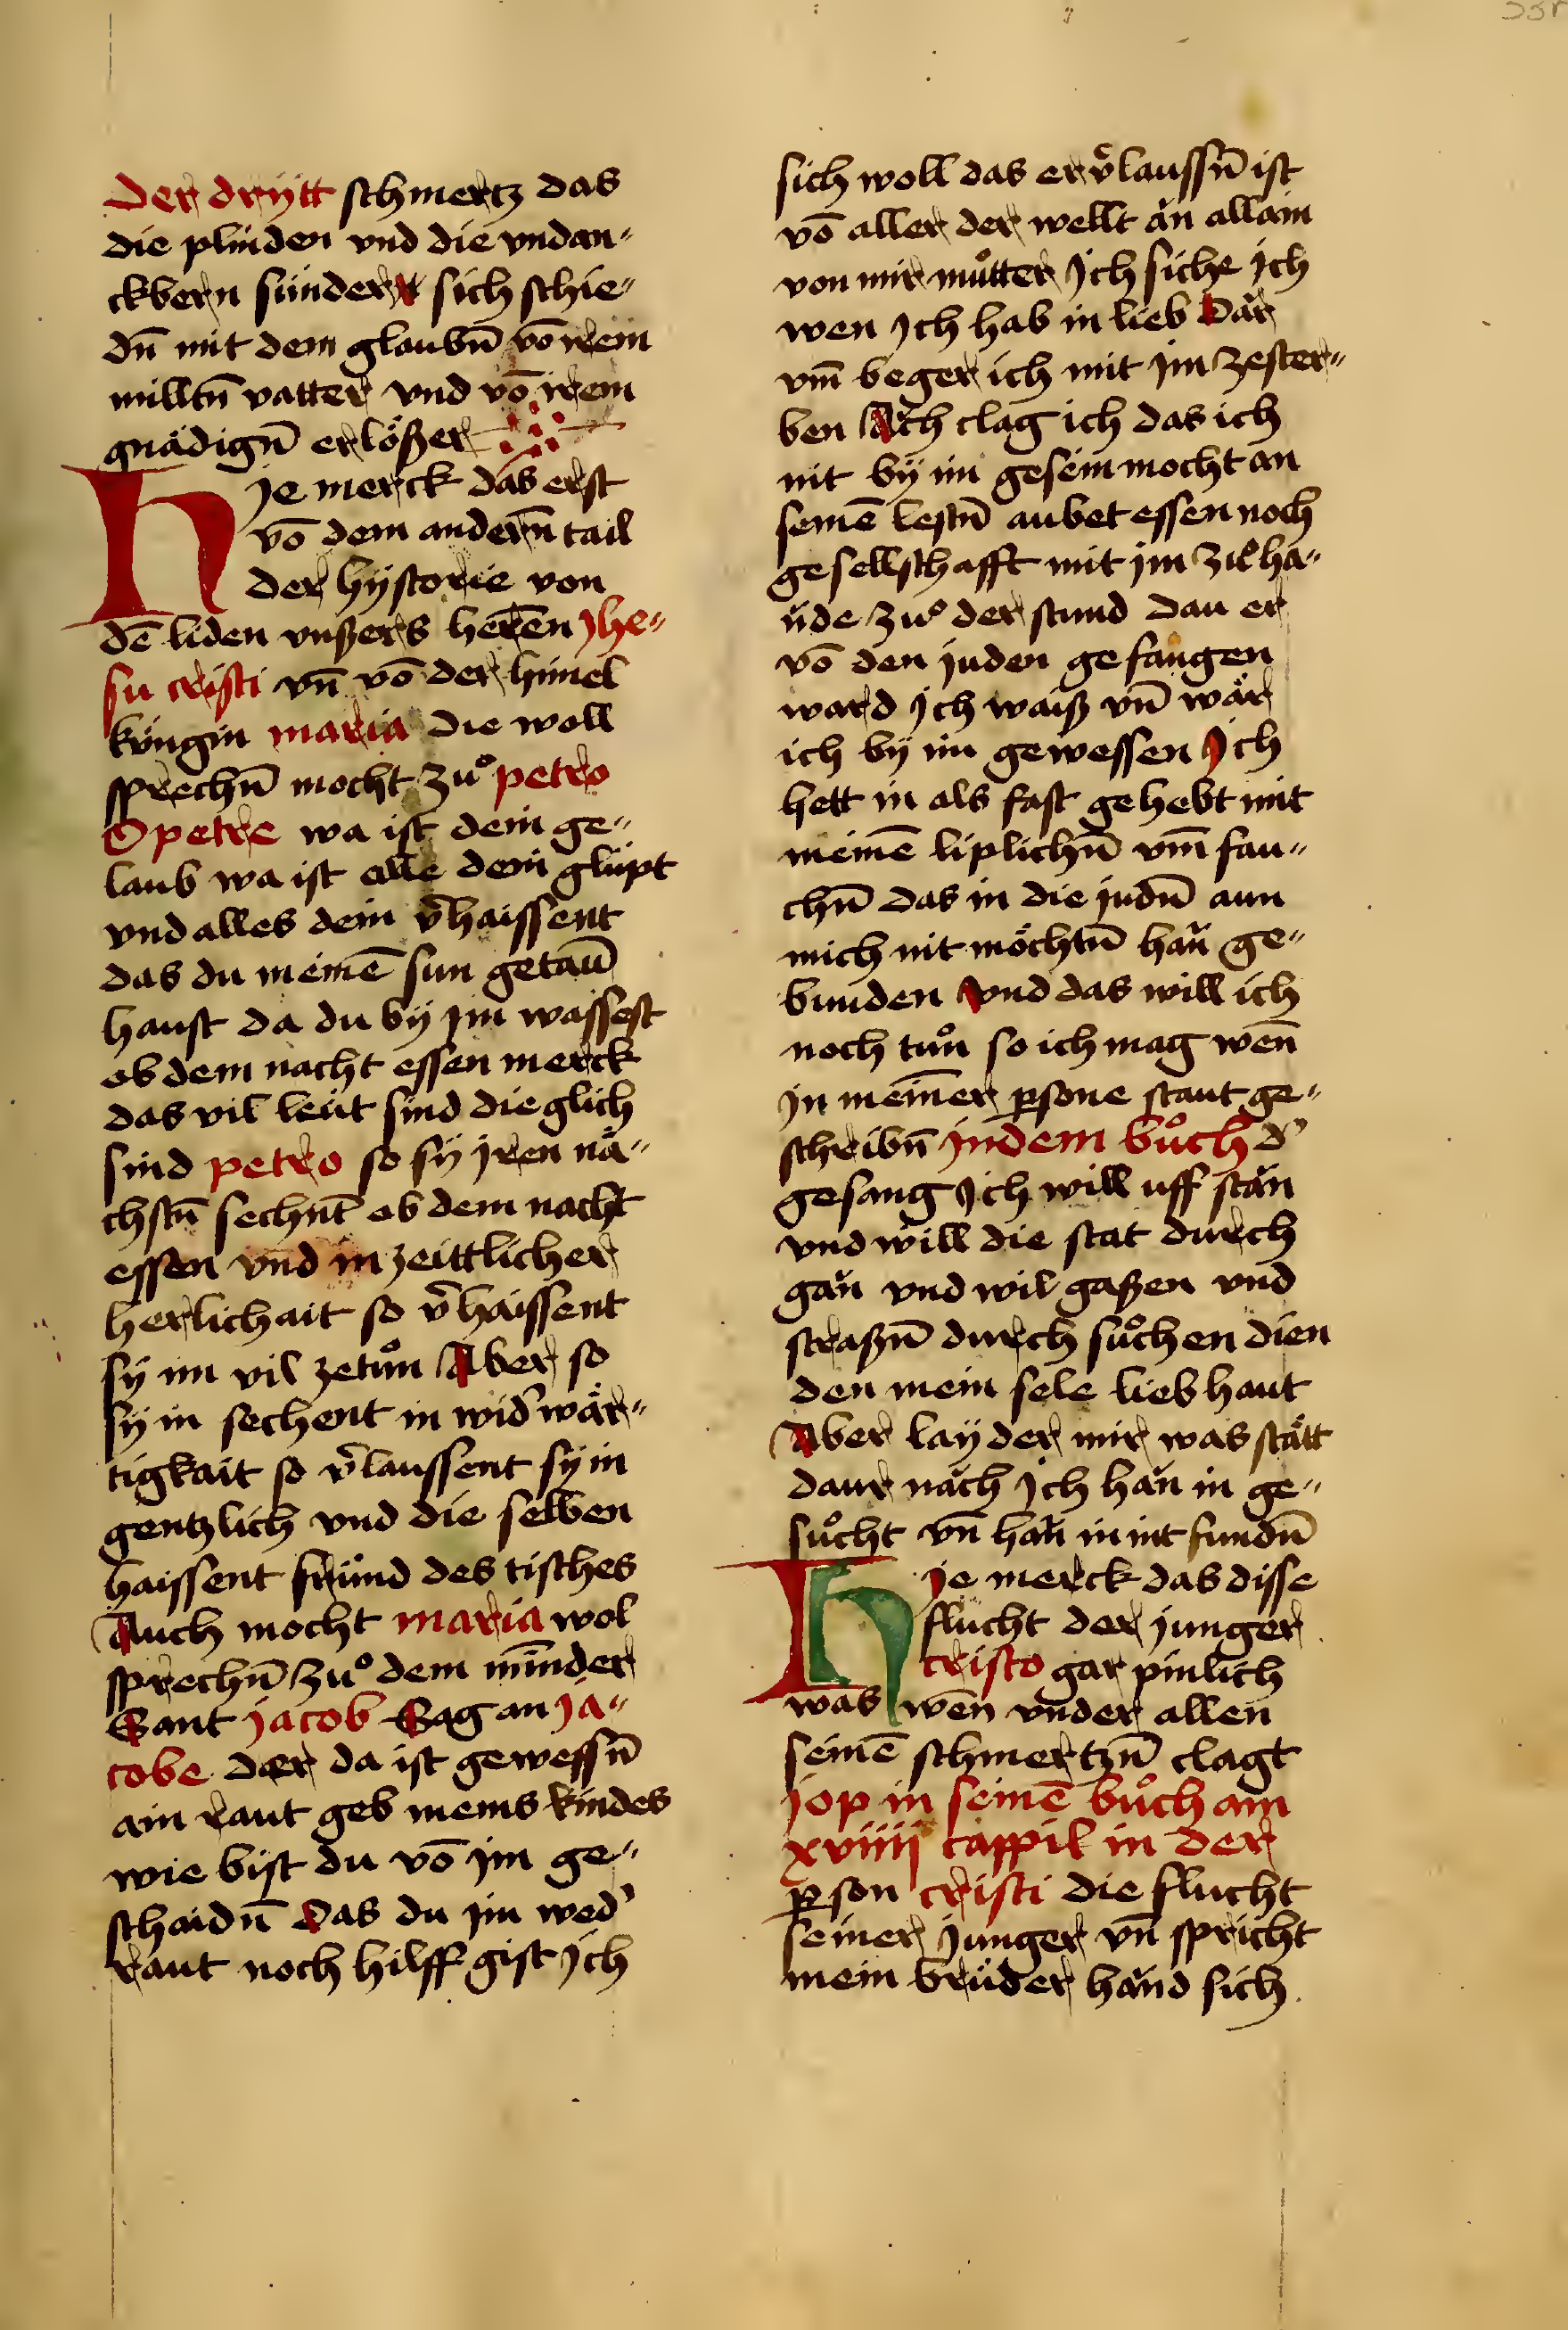 Der drÿtt schmertz das
die plinden vnd die vndan„
ckbern sünder sich schie„
dn̄ mit dem glaubn̄ vō irem
milltn̄ vatter vnd vō irem
gnädign̄ erlößer
Hje merck das erst
vō dem andern̄ tail
der hÿstorie von
dē liden vnßers herēn Jhe„
su cristi vn̄ vō der himel
küngin maria die woll
sprechn̄ mocht zuͦ petro
O petre wa ist dein ge„
laub wa ist alle dein glüpt
vnd alles dein v̄haissent
das du meinē sun getaun̄
haust da du bÿ jm wassest
ob dem nacht essen merck
das vil leüt sind die glich
sind petro so sÿ jren nä„
chstn̄ sechnt̄ ob dem nacht
essen vnd in zeittlicher
herlichait so v̄haissent
sÿ im vil zetuͦn Aber so
sÿ in sechent in wid᾽wär„
tigkait so v̄laussent sÿ in
gentzlich vnd die selben
haissent fründ des tisches
Auch mocht maria wol
sprechn̄ zuͦ dem mīnder
Sant jacob Sag an ja„
cobe der da ist gewessn̄
ain raut geb meins kindes
wie bist du vō jm ge„
schaidn̄ Das du jm wed᾽
raut noch hilff gist Jch
sich woll das er v̄laussn̄ ist
vō aller der wellt än allain
von mir muͦtter Jch siche Jch
wen Jch hab in lieb Dar
vm̄ beger ich mit jm zester„
ben Ach clag ich das ich
nit bÿ im gesein mocht an
seinē lestn̄ aubet essen noch
gesellschafft mit jm zuͦ ha„
nde zuͦ der stund dau er
vō den juden gefangen
ward Jch waiß vn̄ wär
ich bÿ im gewessen Jch
hett in als fast gehebt mit
meinē liplichn̄ vm̄ fau„
chn̄ das in die judn̄ aun
mich nit möchtn̄ han ge„
bunden Vnd das will ich
noch tuͦn so ich mag wen̄
jn mein̄er ꝑsone staut ge„
schribn̄ jndem buͦch d᾽
gesang Jch will uff stän
vnd will die stat durch
gän vnd wil gaßen vnd
straßn̄ durch suͦchen dien
den mein sele lieb haut
Aber laÿder mir was stätt
daur näch Jch hän in ge„
suͦcht vn̄ hän in nit fundn̄
Hje merck das disse
flucht der junger
cristo gar pinlich
was wen̄ vnder allen
seinē schmertzn̄ clagt
jop in seinē buͦch am
xviiij cappil in der
ꝑson cristi die flucht
seiner junger vn̄ spricht
mein brüder händ sich